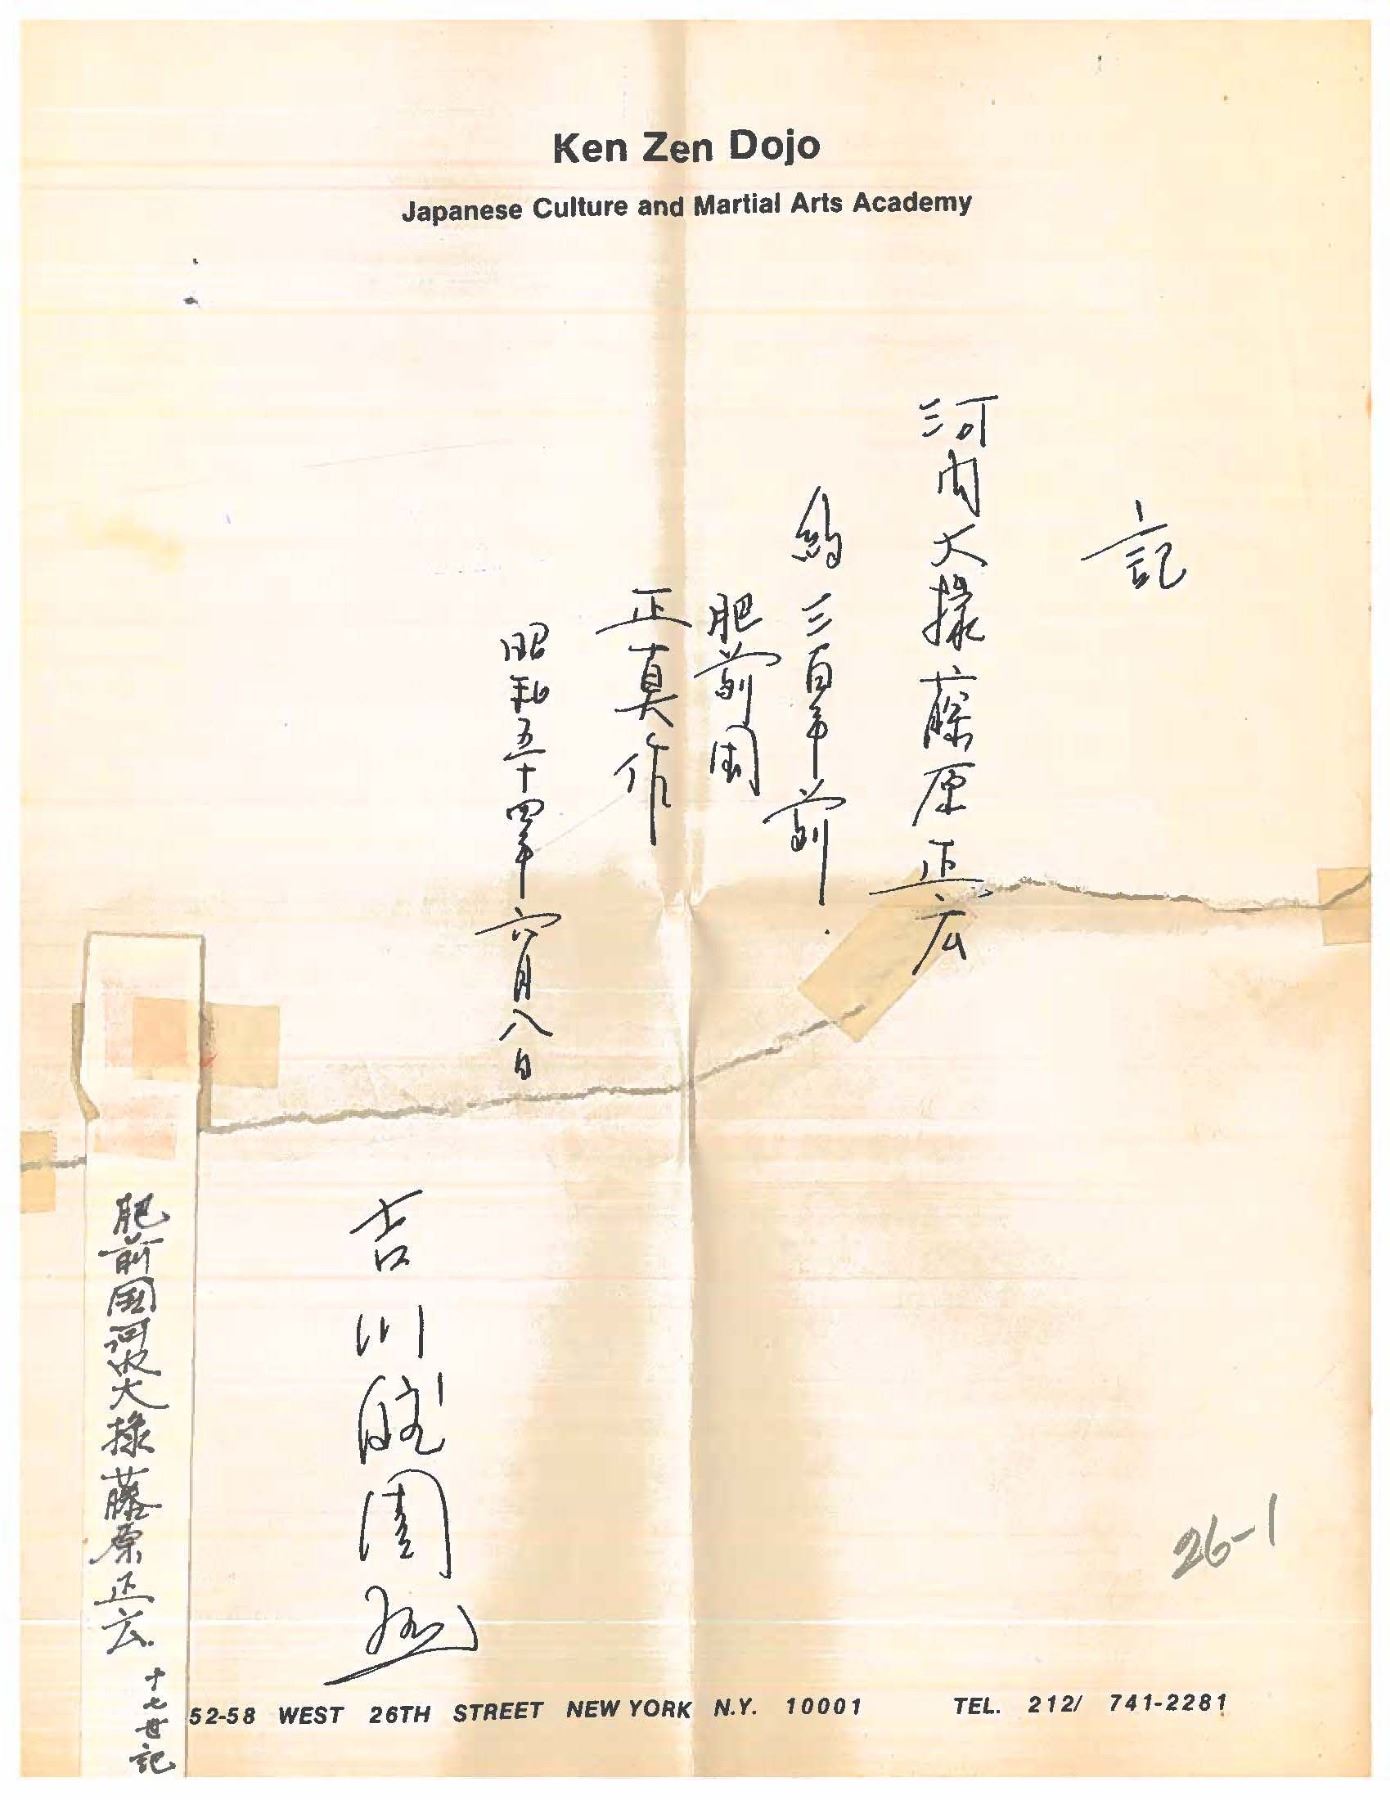 Ken Zen Dojo
Japanese Culture and Martial Arts Academy
記
河内大掾藤原正広
約三百年前.
肥前国
正真作
昭和五十四年六月八日
吉川皖園
肥前国河内大掾藤原正広.
十七世記
26-1
52-58 WEST 26TH STREET NEW YORK N.Y. 10001 TEL. 212/ 741-2281